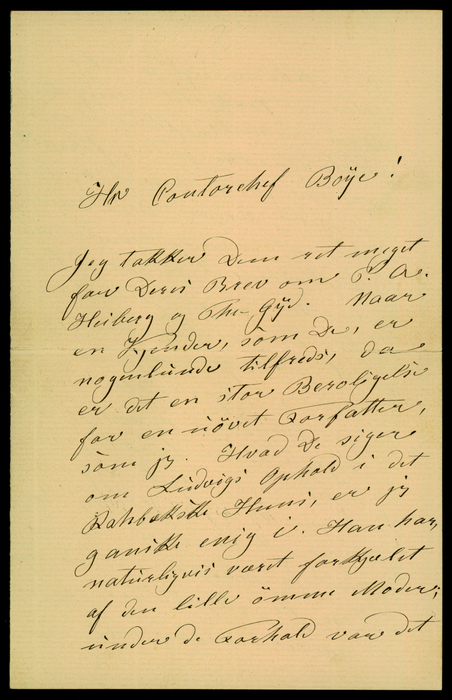 Hr Contorchef Böÿe!
Jeg takker Dem ret meget
for Deres Brev om P. A.
Heiberg og Th. Gyd. Naar
en Kjender, som De, er
nogenlunde tilfreds, da
er det en stor Beroligelse
for en uövet Forfatter,
som jeg. Hvad De siger
om Ludvigs Ophold i det
Rahbekske Huus, er jeg
ganske enig i. Han har,
naturligvis været forkjælet
af den lille ömme Moder;
under de Forhold var det